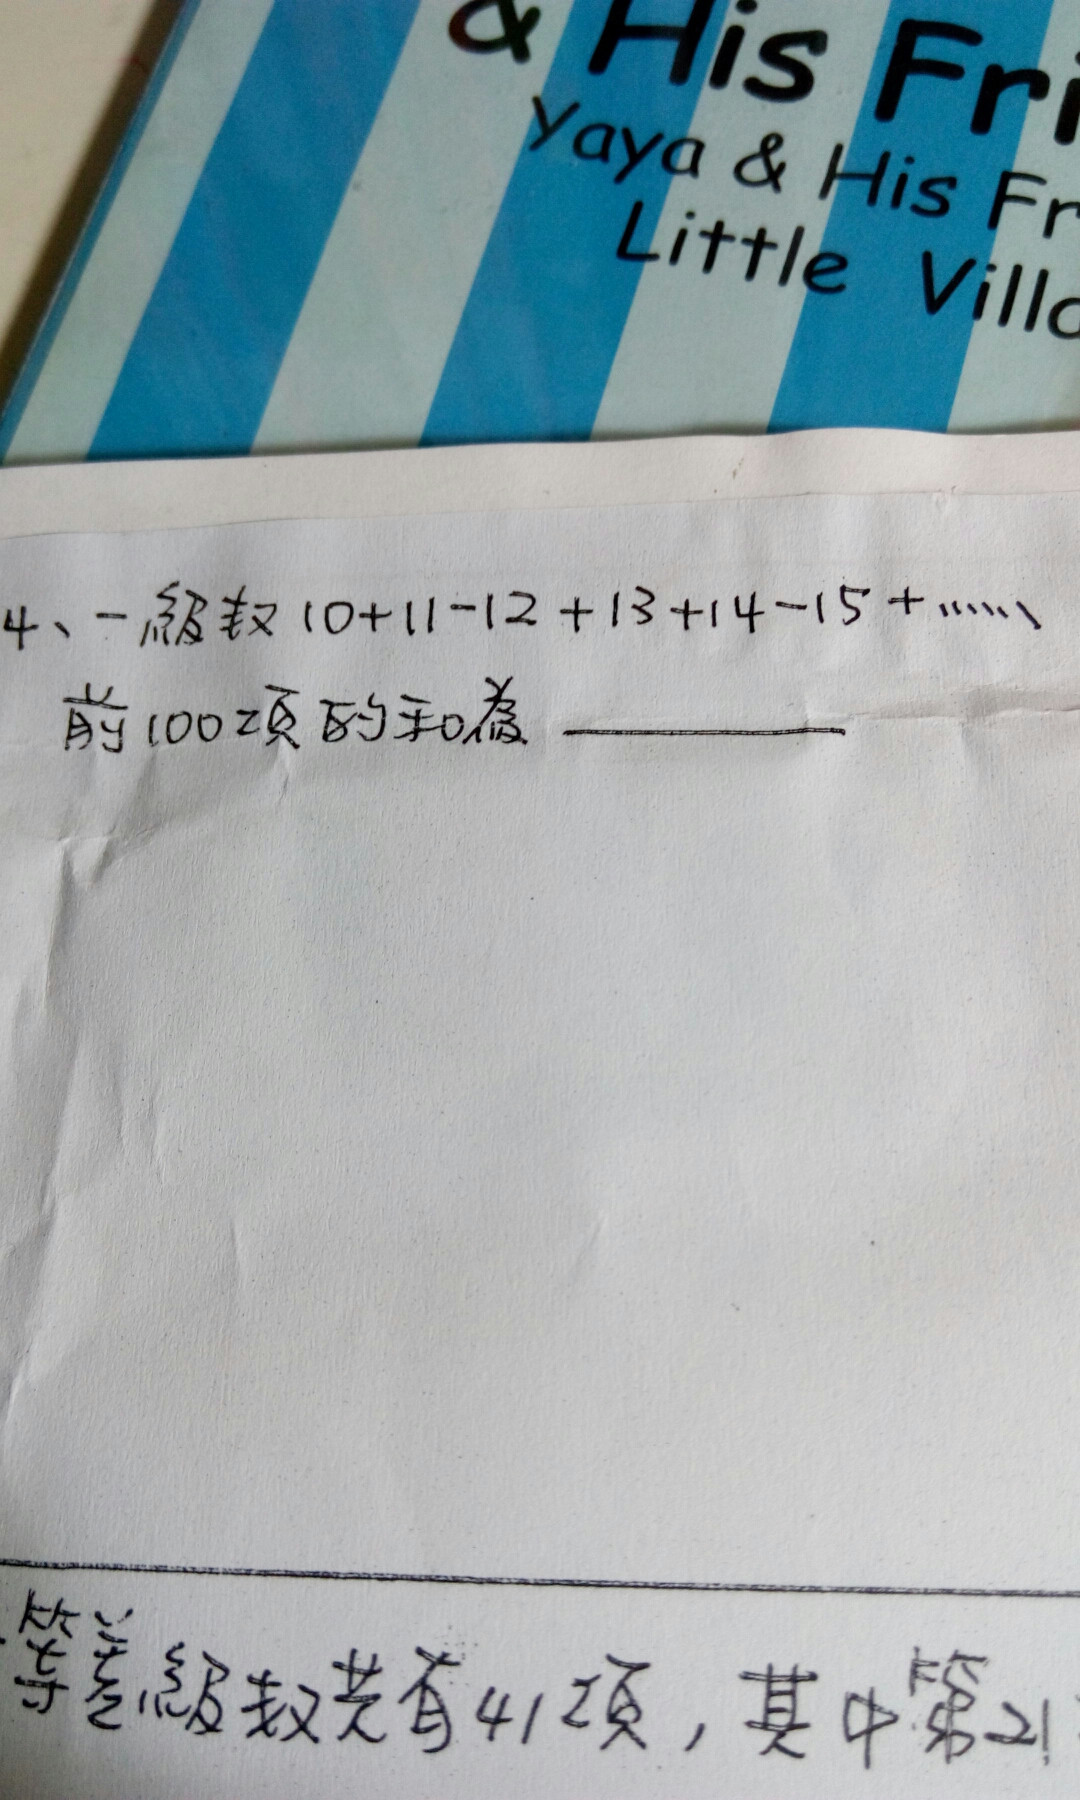 & His Fri
Yaya & His Fr
Little Villa
4、一級数10+11-12+13+14-15+……
前100項的和為
等差級数共有41項,其中第21